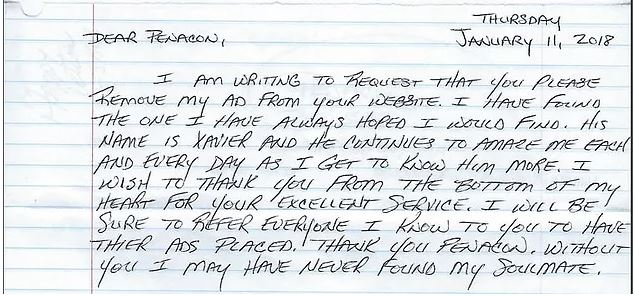 THURSDAY
DEAR PENACON, JANUARY 11, 2018
I AM WRITING TO REQUEST THAT YOU PLEASE
REMOVE MY AD FROM YOUR WEBSITE. I HAVE FOUND
THE ONE I HAVE ALWAYS HOPED I WOULD FIND. HIS
NAME IS XAVIER AND HE CONTINUES TO AMAZE ME EACH
AND EVERY DAY AS I GET TO KNOW HIM MORE. I
WISH TO THANK YOU FROM THE BOTTOM OF MY
HEART FOR YOUR EXCELLENT SERVICE. I WILL BE
SURE TO REFER EVERYONE I KNOW TO YOU TO HAVE
THIER ADS PLACED. THANK YOU PENACON. WITHOUT
YOU I MAY HAVE NEVER FOUND MY SOULMATE.